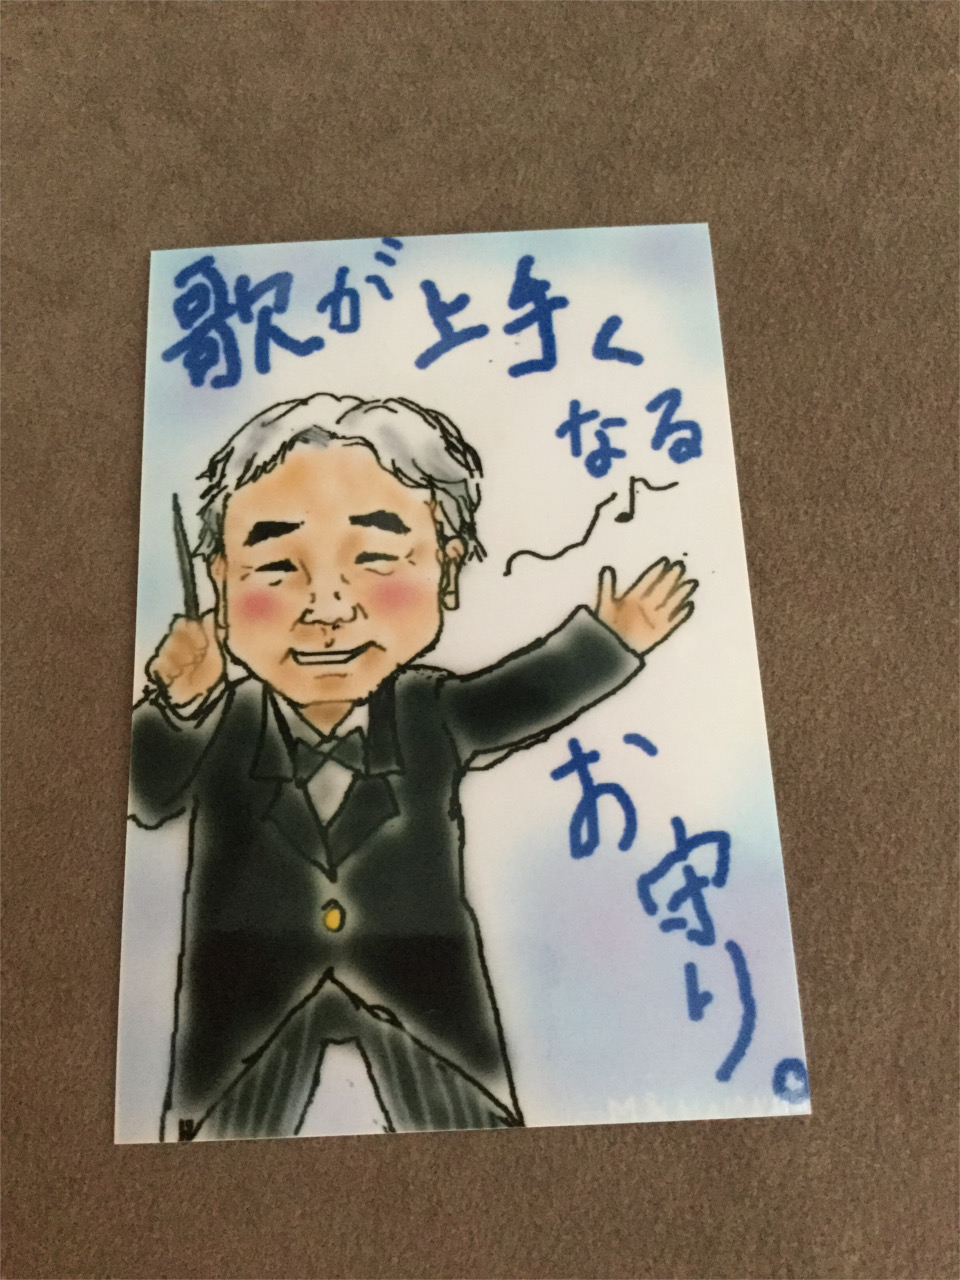 歌が上手く
なる
お守り。